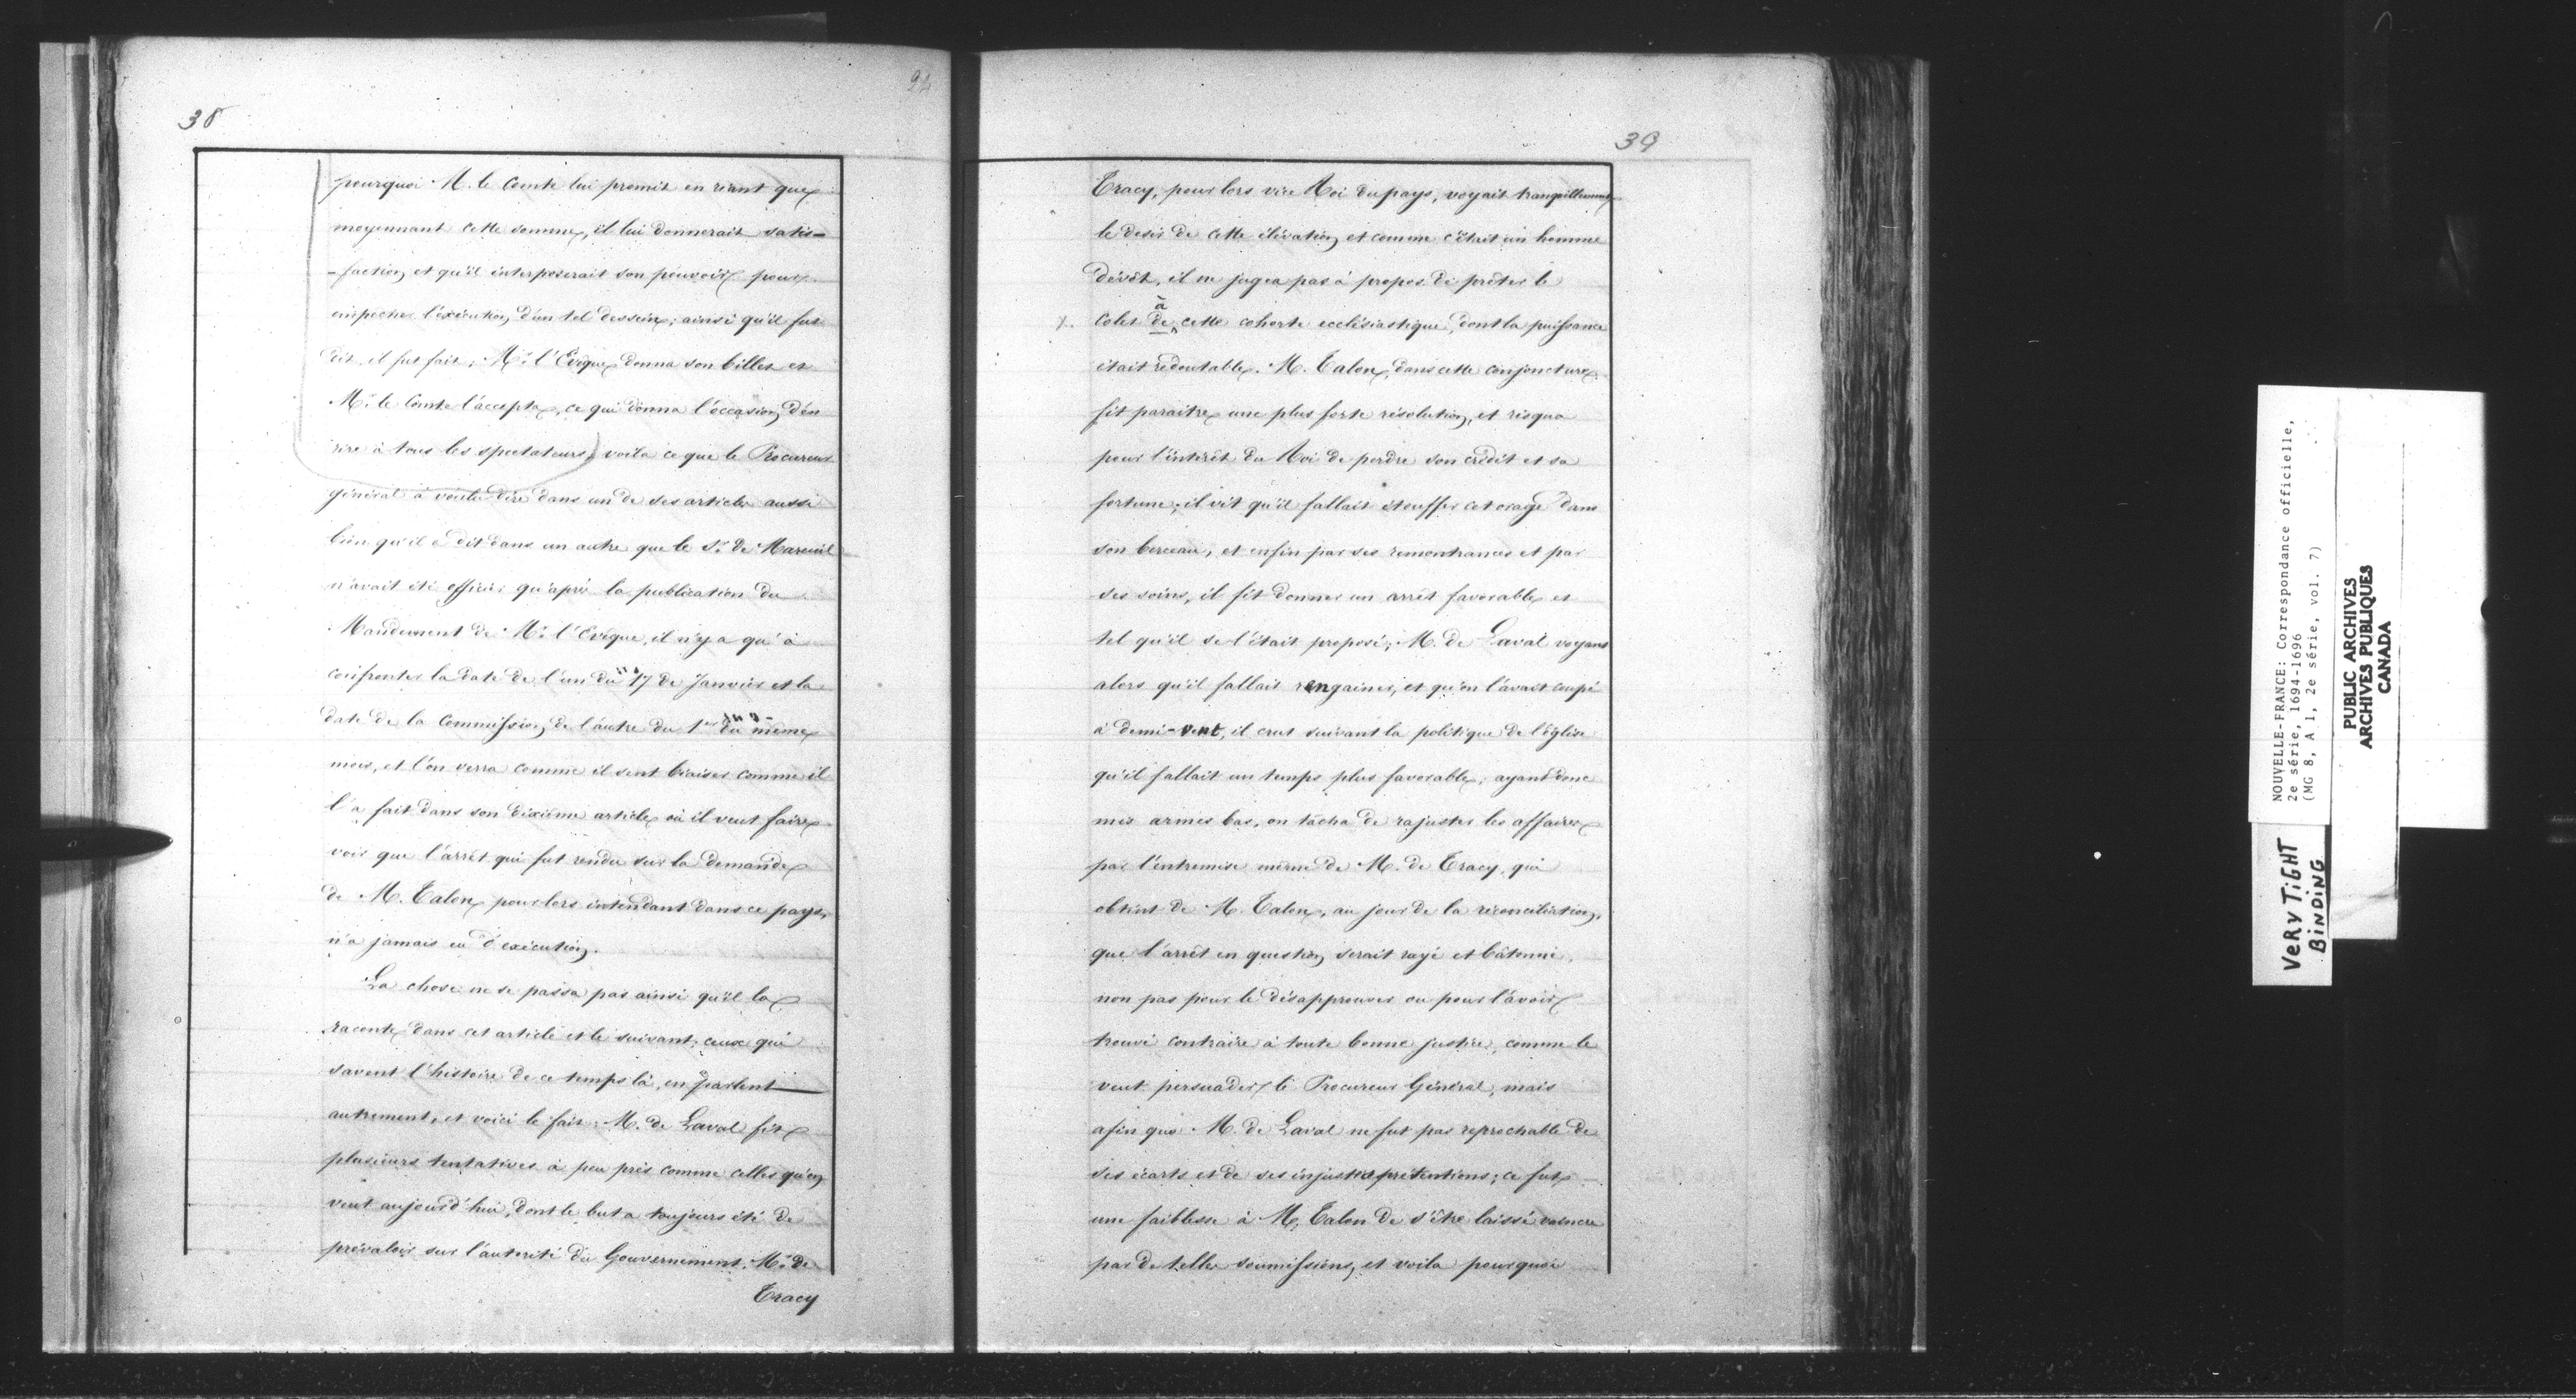 94
38
pourquoi M. le Comte lui promit en riant que
moyennant cette somme, il lui donnerait satis-
-faction, et qu'il interposerait son pouvoir pour
empêcher l'exécution d'un tel dessein; ainsi qu'il fut
dit, il fut fait; Mr. l'Evêque donna son billet et
Mr. le Comte l'accepta, ce qui donna l'occasion d'en
rire à tous les spectateurs; voila ce que le Procureur
général a voulu dire dans un de ses articles aussi
bien qu'il a dit dans un autre que le Sr. de Mareuil
n'avait été officier qu'après la publication du
Mandement de Mr. l'Evêque, il n'y a qu'à
confronter la date de l'un du 17 de Janvier et la
date de la Commission de l'autre du 1er du même
mois, et l'on verra comme il sent biaiser comme il
l'a fait dans son dixième article où il veut faire
voir que l'arrêt qui fut rendu sur la demande
de M. Talon, pour lors intendant dans ce pays,
n'a jamais eu d'exécution.
La chose ne se passa pas ainsi qu'il la
raconte dans cet article et le suivant; ceux qui
savent l'histoire de ce temps là, en parlent
autrement, et voici le fait: M. de Laval fit
plusieurs tentatives à peu près comme celles qu'on
veut aujourd'hui, dont le but a toujours été de
prévaloir sur l'autorité du Gouvernement. Mr. de
Tracy
39
Tracy, pour lors vice Roi du pays, voyait tranquillement
le desir de cette élévation, et comme c'était un homme
dévôt, il ne jugea pas à propos de prêter le
à
colet de cette cohorte ecclésiastique, dont la puissance
était redoutable. M. Talon, dans cette conjoncture
fit paraitre une plus forte résolution, et risqua
pour l'intérêt du Roi de perdre son crédit et sa
fortune; il vit qu'il fallait étouffer cet orage dans
son berceau, et enfin par ses remontrances et par
ses soins, il fit donner un arrêt favorable et
tel qu'il se l'était proposé; M. de Laval voyant
alors qu'il fallait rengainer, et qu'on l'avait coupé
à demi-vent, il crut suivant la politique de l'église
qu'il fallait un temps plus favorable; ayant donc
mis armes bas, on tâcha de rajuster les affaires
par l'entremise même de M. de Tracy, qui
obtint de M. Talon, au jour de la réconciliation,
que l'arrêt en question serait rayé et bâtonné,
non pas pour le désapprouver ou pour l'avoir
trouvé contraire à toute bonne justice, comme le
veut persuader le Procureur Général, mais
afin que M. de Laval ne fut pas reprochable de
ses écarts et de ses injustes prétentions; ce fut
une faiblesse à M. Talon de s'être laissé vaincre
par de telles soumissions, et voila pourquoi
NOUVELLE-FRANCE: Correspondance officielle,
2e série, 1694-1696
(MG 8, A 1, 2e série, vol. 7)
PUBLIC ARCHIVES
ARCHIVES PUBLIQUES
CANADA
VERY TIGHT
BINDING